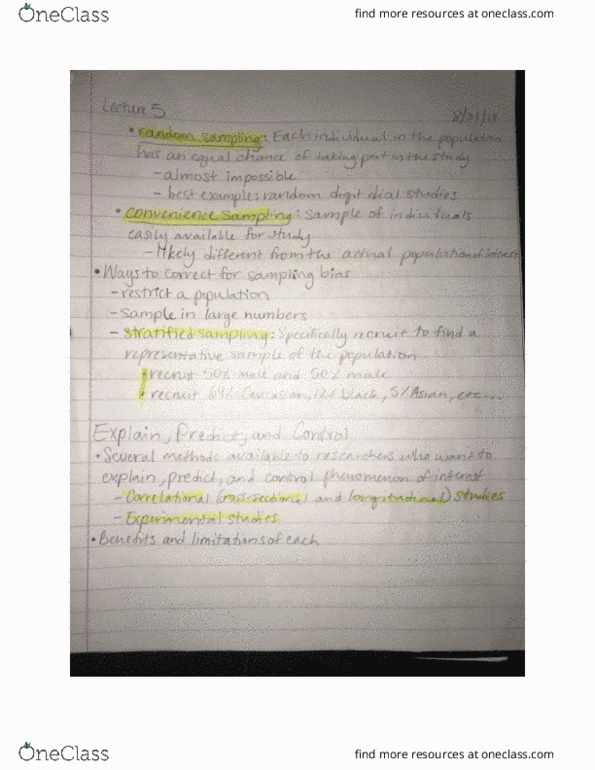 OneClass
find more resources at oneclass.com
Lecture 5
8/31/18
• random sampling: Each individual in the population
has an equal chance of taking part in the study
- almost impossible
- best example: random digit dial studies
• convenience sampling: sample of individuals
easily available for study
- likely different from the actual population of interest
• Ways to correct for sampling bias
- restrict a population
- sample in large numbers
- stratified sampling: Specifically recruit to find a
representative sample of the population
• recruit 50% male and 50% male
• recruit 64% Caucasian, 12% black, 5% Asian, etc...
Explain, Predict, and Control
• Several methods available to researchers who want to
explain, predict, and control phenomenon of interest
- Correlational (cross-sectional and longitudinal) studies
- Experimental studies
• Benefits and limitations of each
OneClass
find more resources at oneclass.com